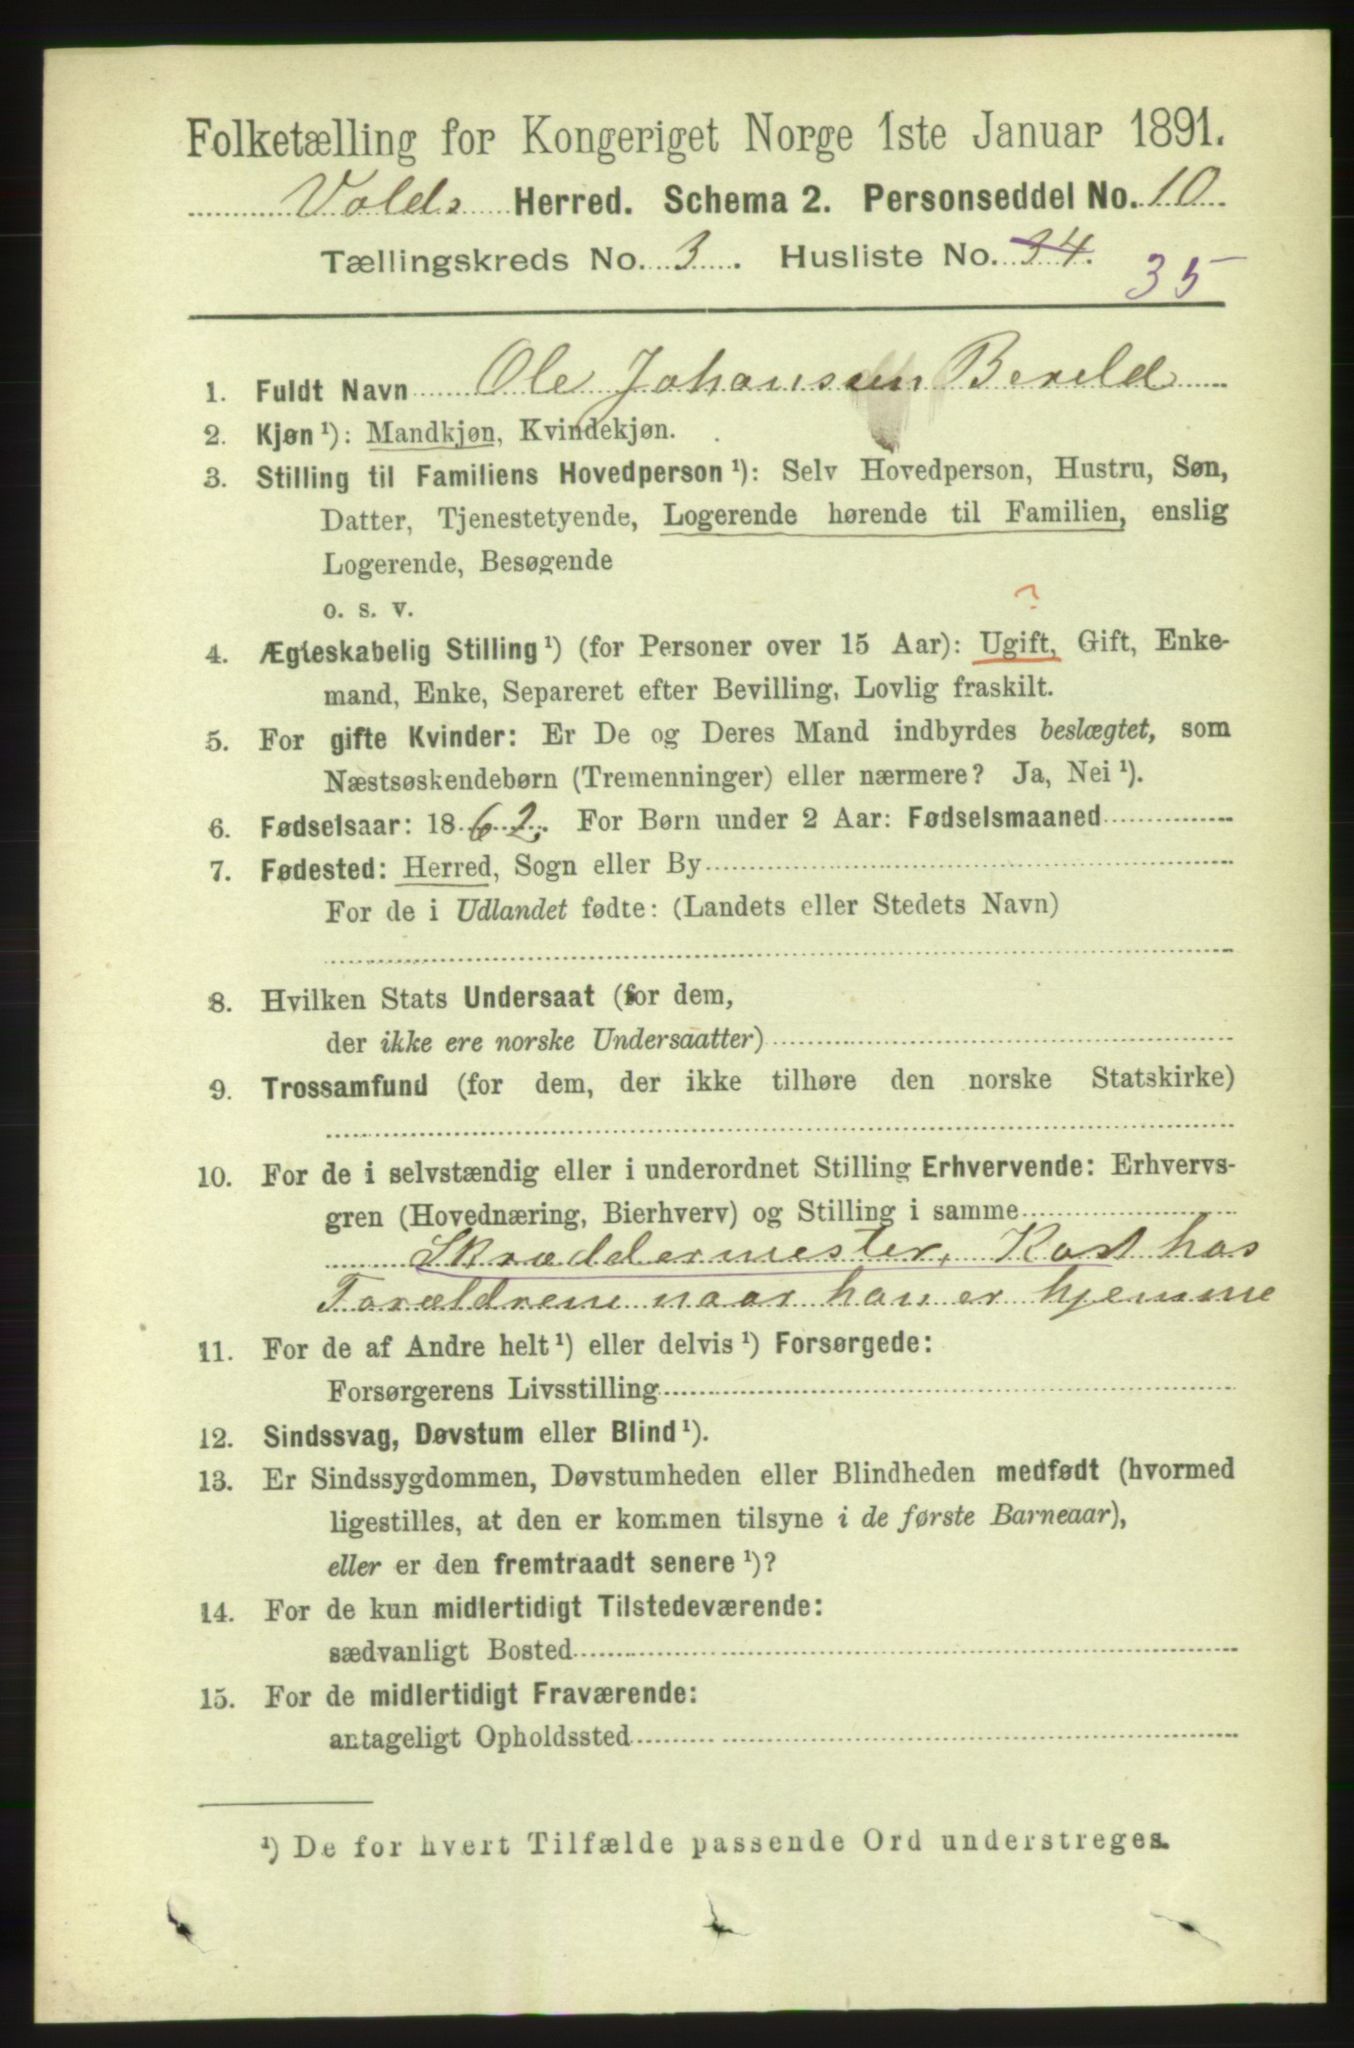 Folketælling for Kongeriget Norge 1ste Januar 1891.
Volds Herred. Schema 2. Personseddel No. 10
Tællingskreds No. 3. Husliste No. 34.
35
1. Fuldt Navn Ole Johansen Bereld
2. Kjøn ¹): Mandkjøn, Kvindekjøn.
3. Stilling til Familiens Hovedperson ¹): Selv Hovedperson, Hustru, Søn,
Datter, Tjenestetyende, Logerende hørende til Familien, enslig
Logerende, Besøgende
o. s. v.
?
4. Ægteskabelig Stilling ¹) (for Personer over 15 Aar): Ugift, Gift, Enke-
mand, Enke, Separeret efter Bevilling, Lovlig fraskilt.
5. For gifte Kvinder: Er De og Deres Mand indbyrdes beslægtet, som
Næstsøskendebørn (Tremenninger) eller nærmere? Ja, Nei ¹).
6. Fødselsaar: 1862. For Børn under 2 Aar: Fødselsmaaned
7. Fødested: Herred, Sogn eller By
For de i Udlandet fødte: (Landets eller Stedets Navn)
8. Hvilken Stats Undersaat (for dem,
der ikke ere norske Undersaatter)
9. Trossamfund (for dem, der ikke tilhøre den norske Statskirke)
10. For de i selvstændig eller i underordnet Stilling Erhvervende: Erhvervs-
gren (Hovednæring, Bierhverv) og Stilling i samme
Skræddermester, Kost hos
Forældrene naar han er hjemme
11. For de af Andre helt ¹) eller delvis ¹) Forsørgede:
Forsørgerens Livsstilling
12. Sindssvag, Døvstum eller Blind ¹).
13. Er Sindssygdommen, Døvstumheden eller Blindheden medfødt (hvormed
ligestilles, at den er kommen tilsyne i de første Barneaar),
eller er den fremtraadt senere ¹)?
14. For de kun midlertidigt Tilstedeværende:
sædvanligt Bosted
15. For de midlertidigt Fraværende:
antageligt Opholdssted
¹) De for hvert Tilfælde passende Ord understreges.